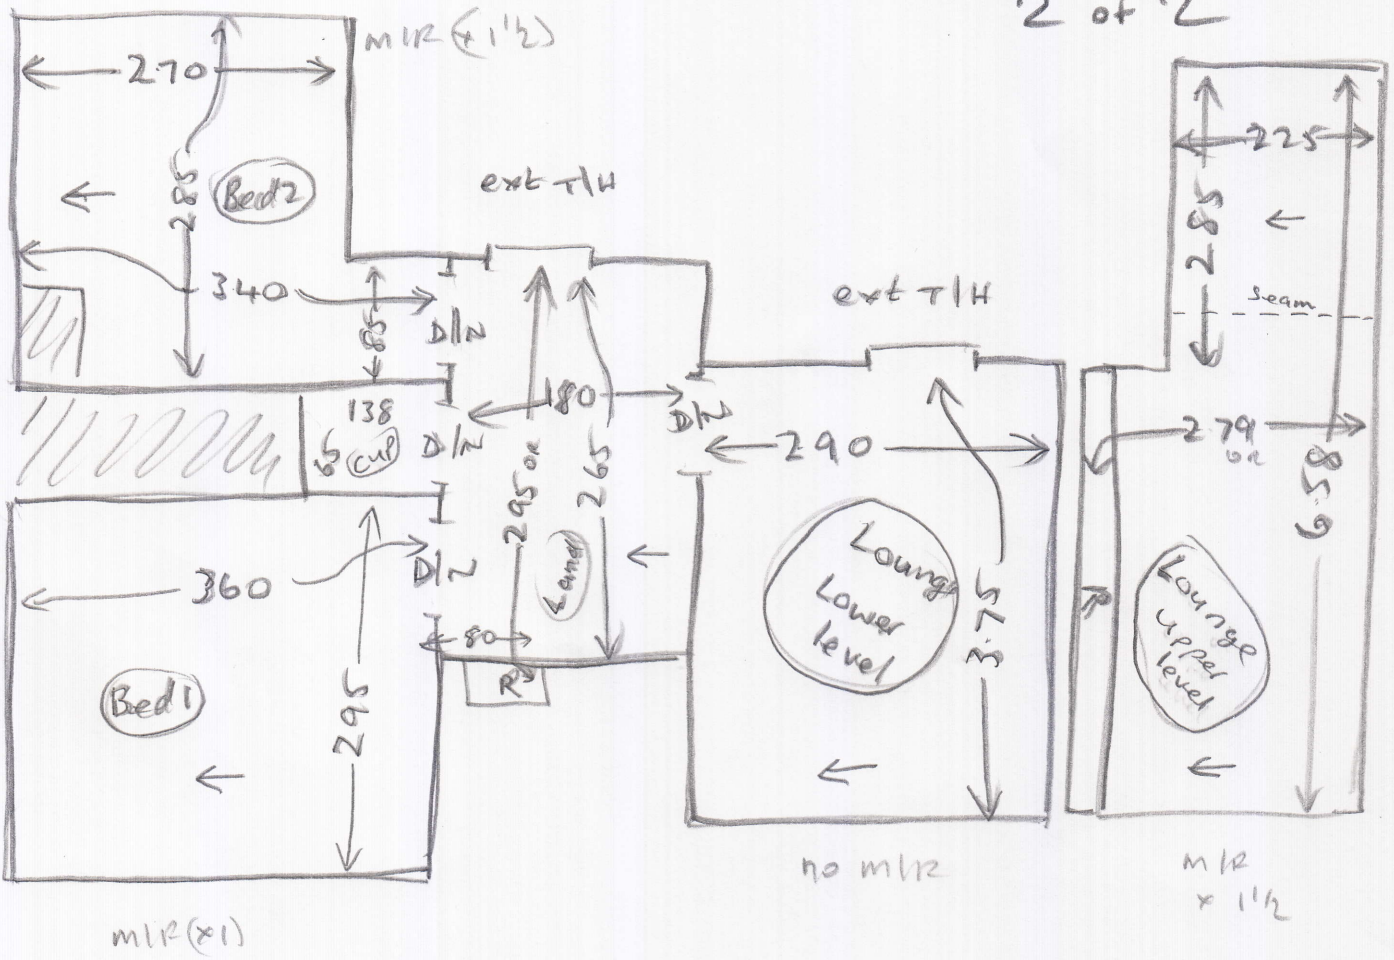 2 of 2
M/R (x 1½)
270
285
Bed2
340
85
D/N
ext T/H
180
D/N
138
65
CUP
D/N
295 OR
265
D/N
360
80
R
Bed1
295
M/R (x1)
ext T/H
290
Lounge
Lower
level
3.75
no M/R
225
285
Seam
279
OR
6.58
Lounge
upper
level
M/R
x 1½